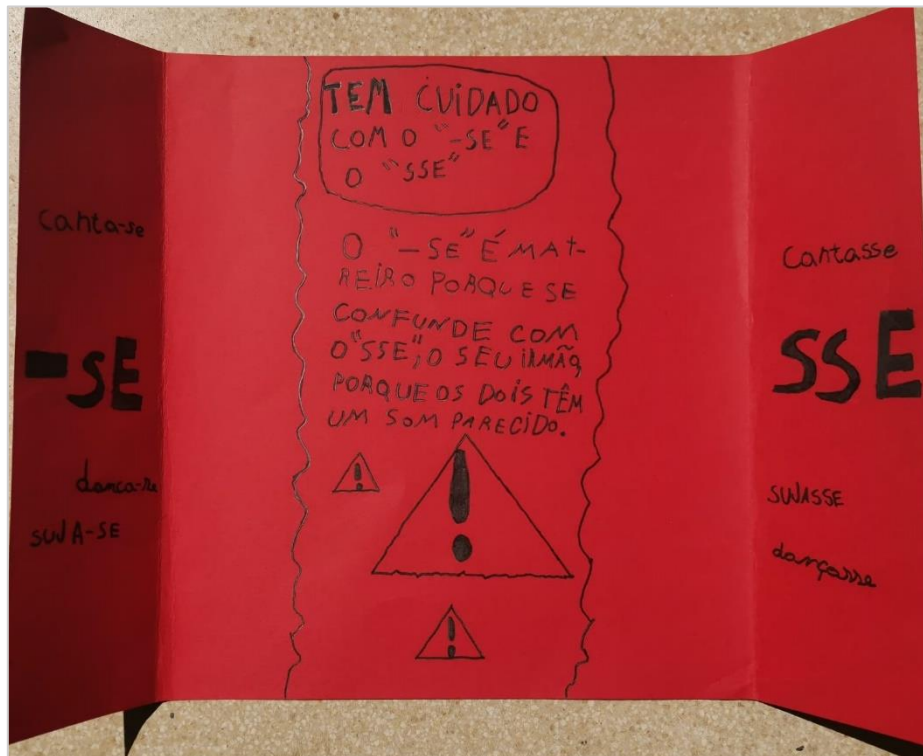 Canta-se
-SE
dança-se
SUJA-SE
TEM CUIDADO
COM O "-SE" E
O "SSE"
O "-SE" É MAT-
REIRO PORQUE SE
CONFUNDE COM
O "SSE", O SEU IRMÃO,
PORQUE OS DOIS TÊM
UM SOM PARECIDO.
Cantasse
SSE
SUJASSE
dançasse